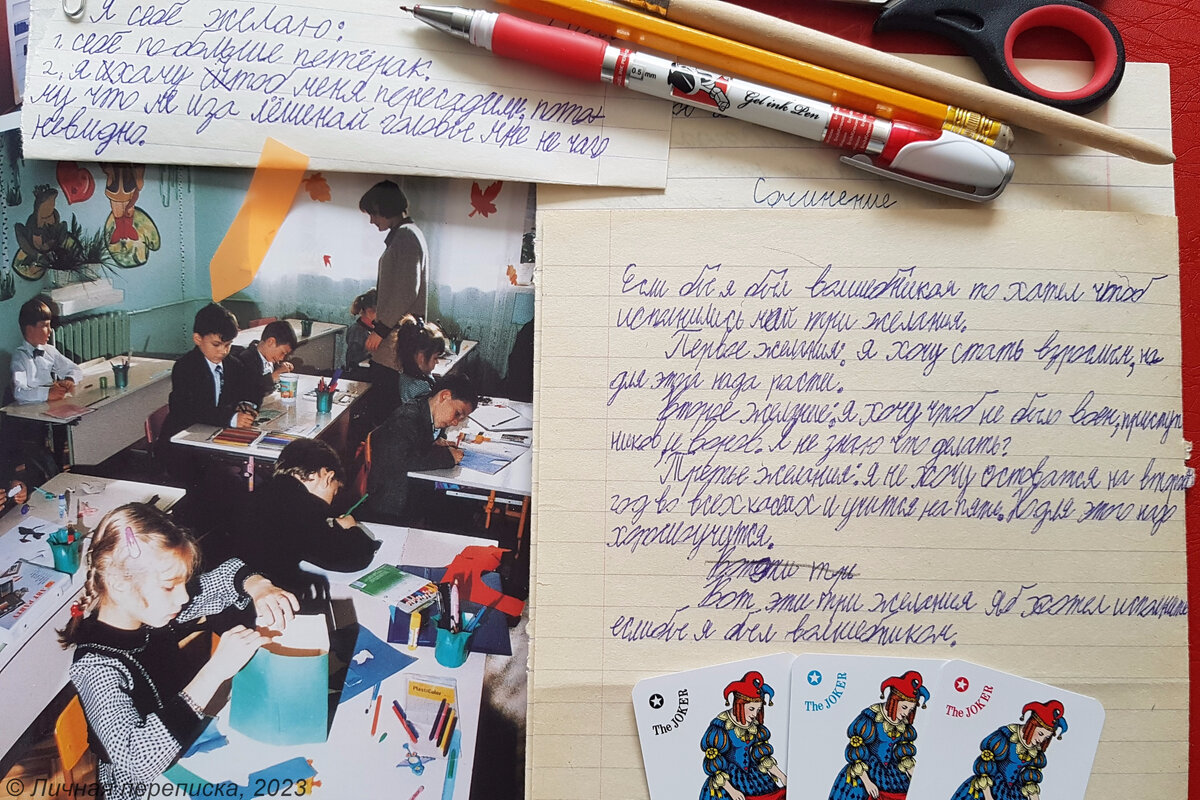 Я себе желаю:
1. себе по-больше петёрак.
2. я хачу чтоб меня пересадили, пота-
му что не иза лёшеной головы мне не чаго
невидно.
0.5 mm
Gel ink Pen
Сочинение
Если бы я был волшебником то хател чтоб
исполнились мои три желания.
Первое желания: я хочу стать взрослым, но
для этго нада расти.
Второе желание: я хочу чтоб не было воен, приступ
ников, и воров. Я не знаю что делать?
Третье желания: я не хочу оставатся на второй
год во всех класах и учится на пяти. Но для этого надо
хорошо учится.
Вот эти три
Вот эти три желания яб хотел исполнить
еслибы я был волшебником.
The JOKER
The JOKER
The JOKER
PlastiColor
© Личная переписка, 2023